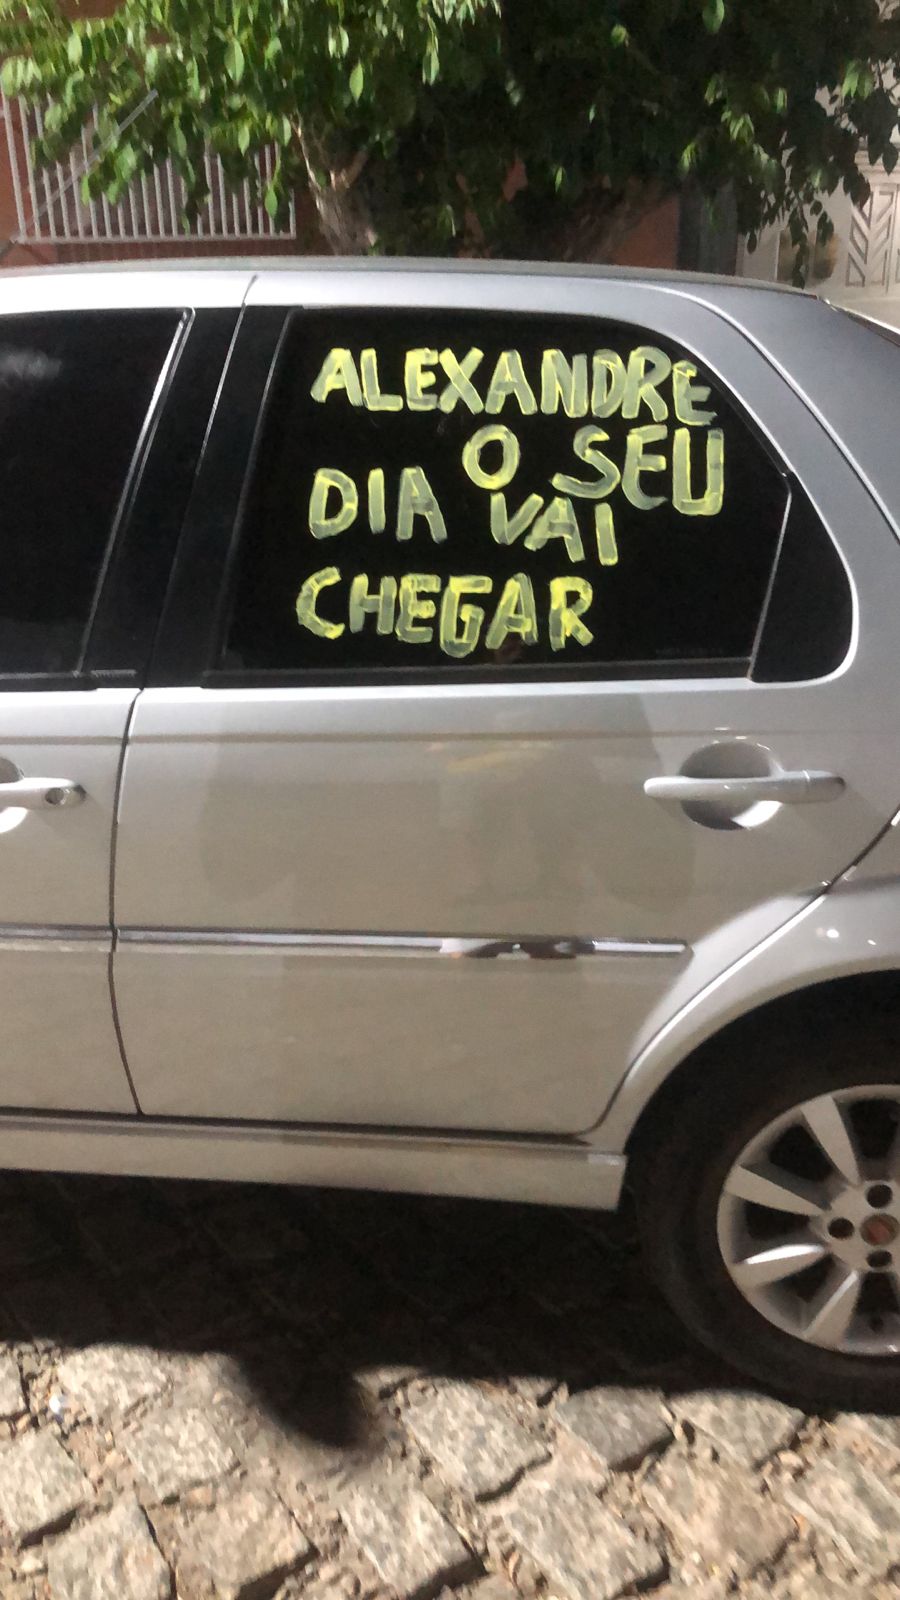 ALEXANDRE
O SEU
DIA VAI
CHEGAR